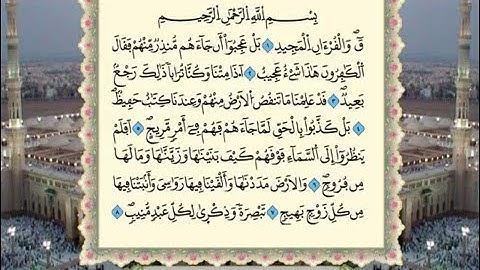 بِسْمِ اللَّهِ الرَّحْمَٰنِ الرَّحِيمِ
قٓ وَالْقُرْءَانِ الْمَجِيدِ ١ بَلْ عَجِبُوٓا أَن جَآءَهُم مُّنذِرٌ مِّنْهُمْ فَقَالَ
الْكَٰفِرُونَ هَٰذَا شَيْءٌ عَجِيبٌ ٢ أَءِذَا مِتْنَا وَكُنَّا تُرَابًا ذَٰلِكَ رَجْعٌۢ
بَعِيدٌ ٣ قَدْ عَلِمْنَا مَا تَنقُصُ الْأَرْضُ مِنْهُمْ وَعِندَنَا كِتَٰبٌ حَفِيظٌۢ
٤ بَلْ كَذَّبُوا بِالْحَقِّ لَمَّا جَآءَهُمْ فَهُمْ فِىٓ أَمْرٍ مَّرِيجٍ ٥ أَفَلَمْ
يَنظُرُوٓا إِلَى السَّمَآءِ فَوْقَهُمْ كَيْفَ بَنَيْنَٰهَا وَزَيَّنَّٰهَا وَمَا لَهَا
مِن فُرُوجٍ ٦ وَالْأَرْضَ مَدَدْنَٰهَا وَأَلْقَيْنَا فِيهَا رَوَٰسِىَ وَأَنۢبَتْنَا فِيهَا
مِن كُلِّ زَوْجٍۭ بَهِيجٍ ٧ تَبْصِرَةً وَذِكْرَىٰ لِكُلِّ عَبْدٍ مُّنِيبٍ ٨